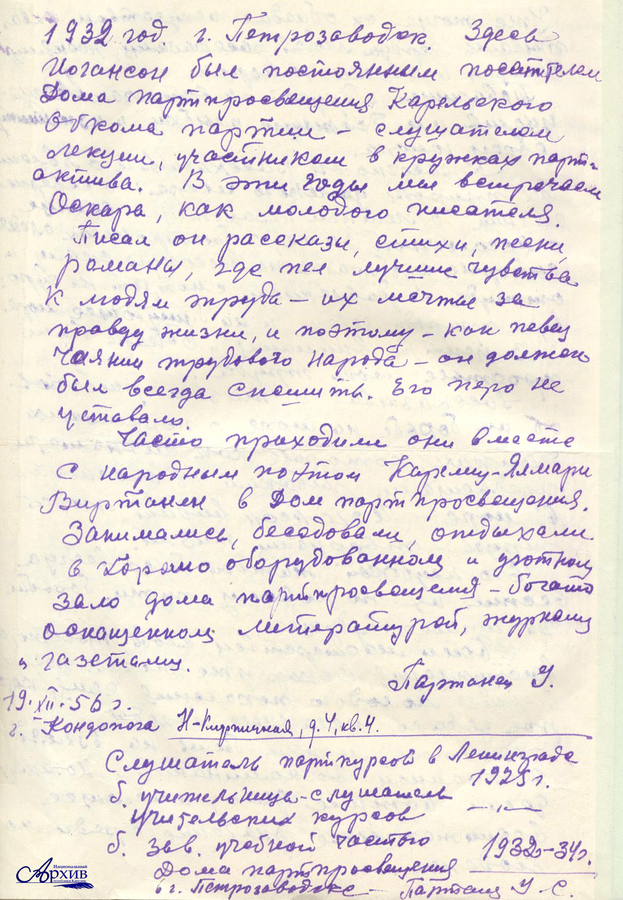 1932 год. г. Петрозаводск. Здесь
Иогансон был постоянным посетителем
Дома партпросвещения Карельского
Обкома партии – слушателем
лекции, участником в кружках парт-
актива. В эти годы мы встречаем
Оскара, как молодого писателя.
Писал он рассказы, стихи, песни,
романы, где пел лучшие чувства
к людям труда – их мечты за
правду жизни, и поэтому – как певец
чаянии трудового народа – он должен
был всегда спешить. Его перо не
уставало.
Часто приходили они вместе
с народным поэтом Карелии – Ялмари
Виртанен в Дом партпросвещения.
Занимались, беседовали, отдыхали
в хорошо оборудованном и уютном
зале дома партпросвещения – богато
оснащенном литературой,
газетами.
Партанен У.
19.XII-56 г.
г. Кондопога Н-Кирпичная, д. 4, кв. 4.
Слушатель парткурсов в Ленинграде
1925 г.
б. учительница – слушатель
учительских курсов — " —
б. зав. учебной частью
Дома партпросвещения 1932–34 г.
в г. Петрозаводске – Партанен У. С.
Национальный
Архив
Республики Карелия